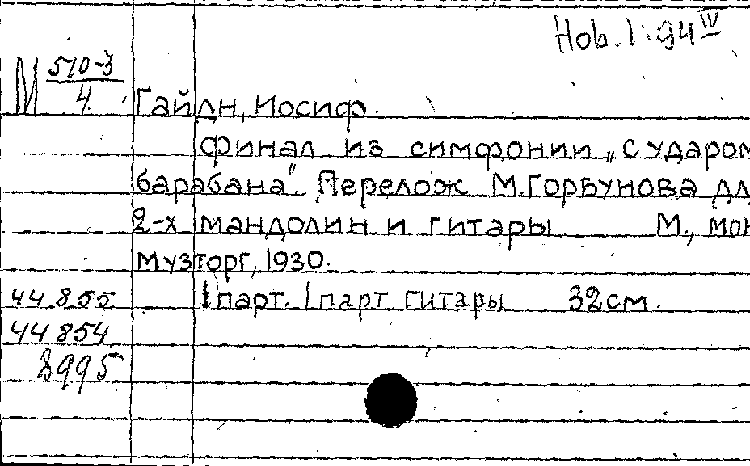 Hob. I:94 IV
М 510-3
4
Гайдн, Иосиф.
Финал из симфонии „с ударом
барабана". Перелож М.Горбунова дл
2-х мандолин и гитары М., мон
музторг, 1930.
1 парт. 1 парт гитары 32 см.
44 855
44 854
8995